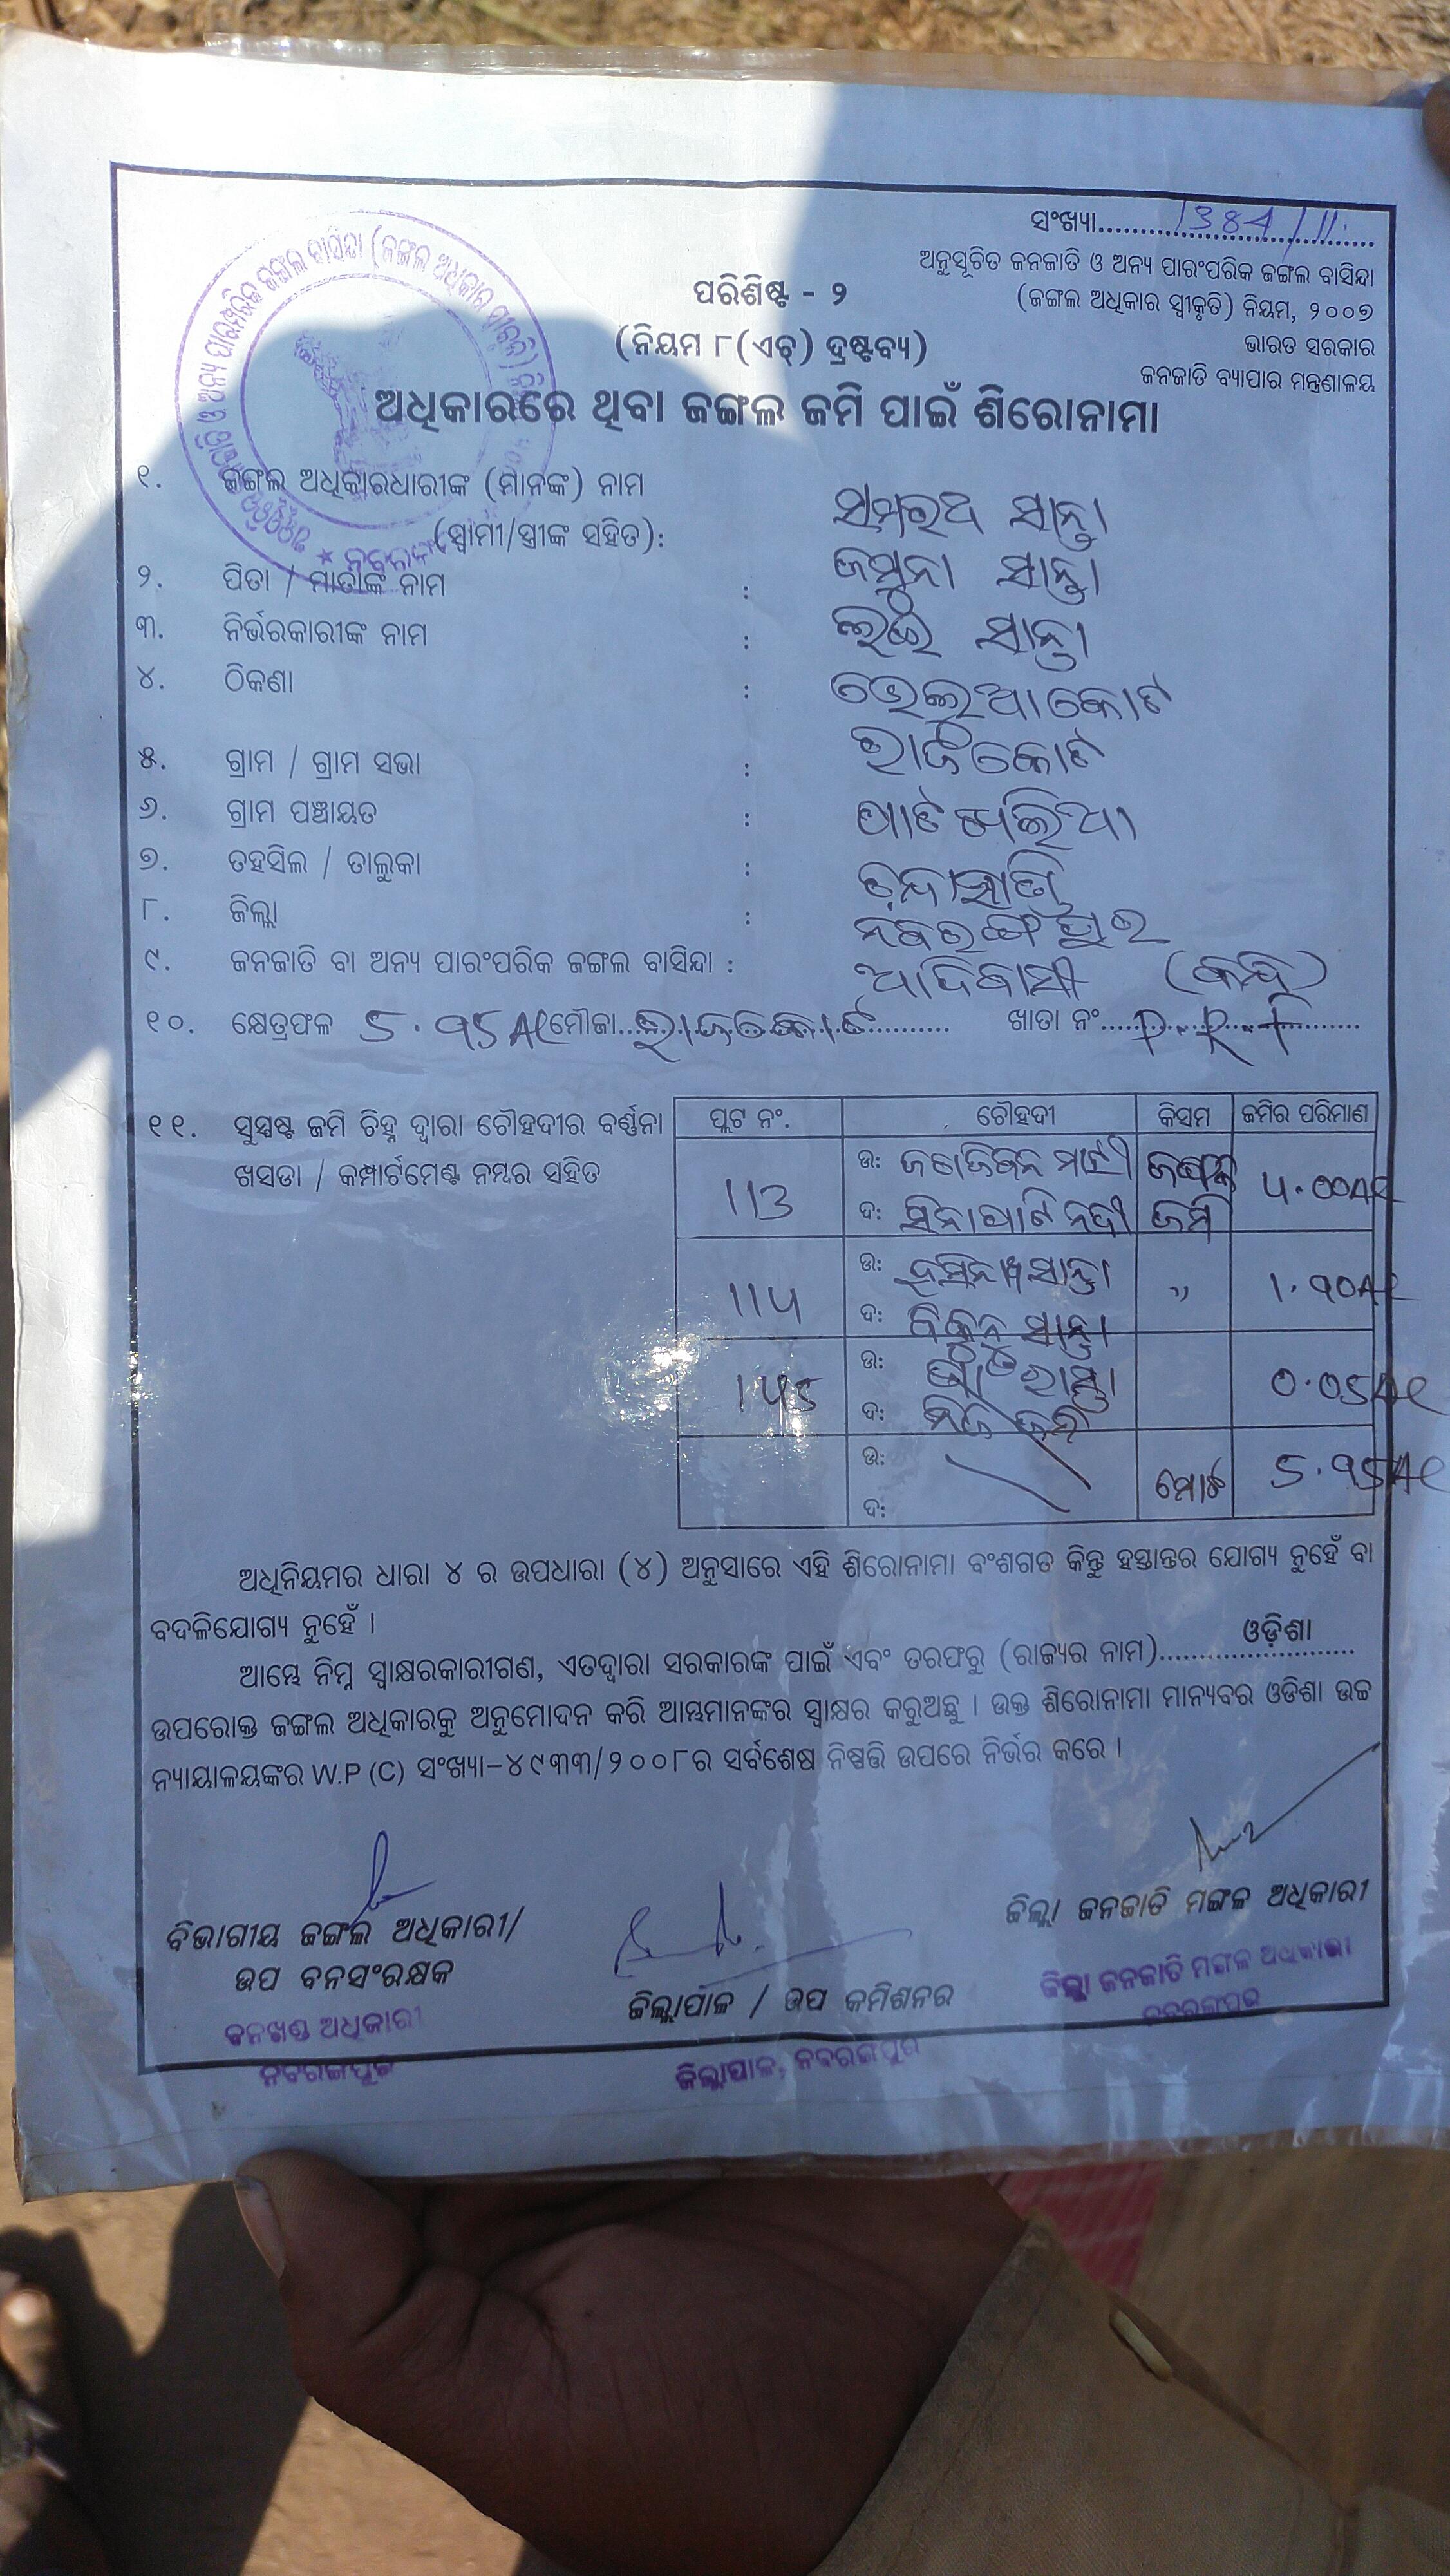 ସଂଖ୍ୟା.......1384/11.......
ଅନୁସୂଚିତ ଜନଜାତି ଓ ଅନ୍ୟ ପାରଂପରିକ ଜଙ୍ଗଲ ବାସିନ୍ଦା
(ଜଙ୍ଗଲ ଅଧିକାର ସ୍ୱୀକୃତି) ନିୟମ, ୨୦୦୭
ଭାରତ ସରକାର
ଜନଜାତି ବ୍ୟାପାର ମନ୍ତ୍ରଣାଳୟ
ପରିଶିଷ୍ଟ - ୨
(ନିୟମ ୮(ଏଚ୍) ଦ୍ରଷ୍ଟବ୍ୟ)
ଅଧିକାରରେ ଥିବା ଜଙ୍ଗଲ ଜମି ପାଇଁ ଶିରୋନାମା
୧. ଜଙ୍ଗଲ ଅଧିକାରଧାରୀଙ୍କ (ମାନଙ୍କ) ନାମ
(ସ୍ୱାମୀ/ସ୍ତ୍ରୀଙ୍କ ସହିତ): ସାନ୍ତା
୨. ପିତା / ମାତାଙ୍କ ନାମ : ଜମୁନା ସାନ୍ତା
୩. ନିର୍ଭରକାରୀଙ୍କ ନାମ : ସାନ୍ତା
୪. ଠିକଣା :
୫. ଗ୍ରାମ / ଗ୍ରାମ ସଭା : ରାଜକୋଟ
୬. ଗ୍ରାମ ପଞ୍ଚାୟତ :
୭. ତହସିଲ / ତାଲୁକା :
୮. ଜିଲ୍ଲା : ନବରଙ୍ଗପୁର
୯. ଜନଜାତି ବା ଅନ୍ୟ ପାରଂପରିକ ଜଙ୍ଗଲ ବାସିନ୍ଦା : ଆଦିବାସୀ
୧୦. କ୍ଷେତ୍ରଫଳ 5.95 Ac ମୌଜା...ରାଜକୋଟ... ଖାତା ନଂ...P.R.F...
୧୧. ସୁସ୍ପଷ୍ଟ ଜମି ଚିହ୍ନ ଦ୍ୱାରା ଚୌହଦୀର ବର୍ଣ୍ଣନା
ଖସଡା / କମ୍ପାର୍ଟମେଣ୍ଟ ନମ୍ବର ସହିତ
ପ୍ଲଟ ନଂ. ଚୌହଦୀ କିସମ ଜମିର ପରିମାଣ
113 ଉ: ଜଙ୍ଗଲ 4.00Ac
ଦ: ନଦୀ ଜମି
114 ଉ: ସାନ୍ତା ,, 1.90Ac
ଦ: ସାନ୍ତା
145 ଉ: ରାସ୍ତା 0.05Ac
ଦ:
ଉ: ମୋଟ 5.95Ac
ଦ:
ଅଧିନିୟମର ଧାରା ୪ ର ଉପଧାରା (୪) ଅନୁସାରେ ଏହି ଶିରୋନାମା ବଂଶଗତ କିନ୍ତୁ ହସ୍ତାନ୍ତର ଯୋଗ୍ୟ ନୁହେଁ ବା
ବଦଳିଯୋଗ୍ୟ ନୁହେଁ ।
ଆମ୍ଭେ ନିମ୍ନ ସ୍ୱାକ୍ଷରକାରୀଗଣ, ଏତଦ୍ୱାରା ସରକାରଙ୍କ ପାଇଁ ଏବଂ ତରଫରୁ (ରାଜ୍ୟର ନାମ).......ଓଡ଼ିଶା.......
ଉପରୋକ୍ତ ଜଙ୍ଗଲ ଅଧିକାରକୁ ଅନୁମୋଦନ କରି ଆମ୍ଭମାନଙ୍କର ସ୍ୱାକ୍ଷର କରୁଅଛୁ । ଉକ୍ତ ଶିରୋନାମା ମାନ୍ୟବର ଓଡିଶା ଉଚ୍ଚ
ନ୍ୟାୟାଳୟଙ୍କର W.P (C) ସଂଖ୍ୟା-୪୯୩୩/୨୦୦୮ର ସର୍ବଶେଷ ନିଷ୍ପତ୍ତି ଉପରେ ନିର୍ଭର କରେ ।
ବିଭାଗୀୟ ଜଙ୍ଗଲ ଅଧିକାରୀ/
ଉପ ବନସଂରକ୍ଷକ
ବନଖଣ୍ଡ ଅଧିକାରୀ
ନବରଙ୍ଗପୁର
ଜିଲ୍ଲାପାଳ / ଉପ କମିଶନର
ଜିଲ୍ଲାପାଳ, ନବରଙ୍ଗପୁର
ଜିଲ୍ଲା ଜନଜାତି ମଙ୍ଗଳ ଅଧିକାରୀ
ଜିଲ୍ଲା ଜନଜାତି ମଙ୍ଗଳ ଅଧିକାରୀ
ନବରଙ୍ଗପୁର